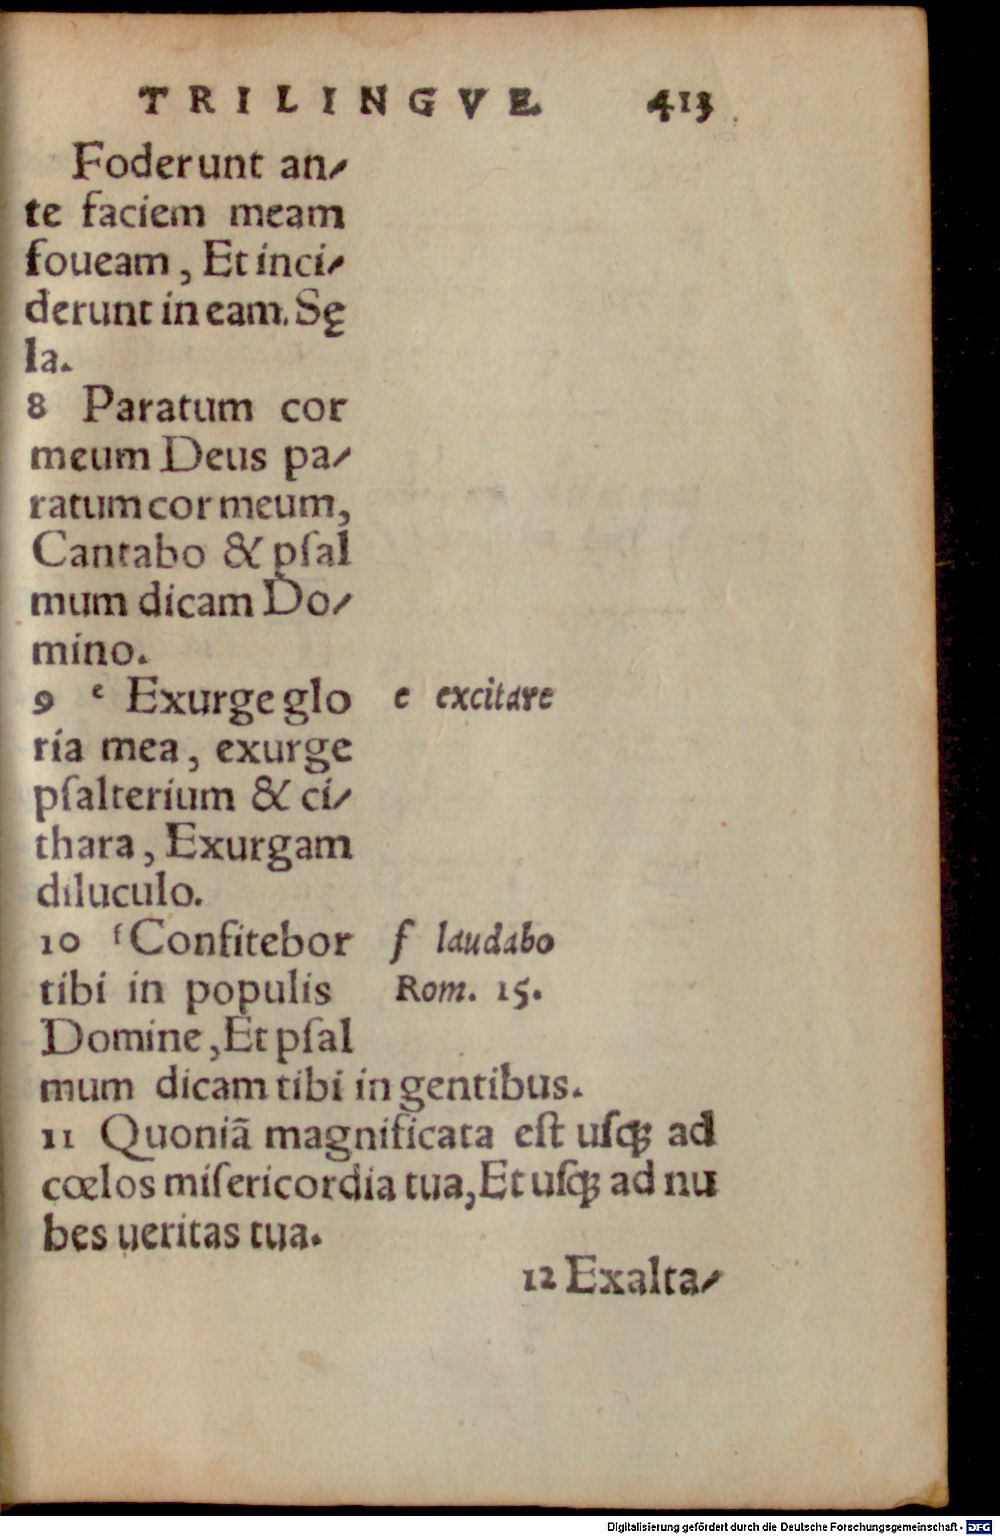 TRILINGVE 413
Foderunt an⸗
te faciem meam
foueam, Et inci⸗
derunt in eam. Sę
la.
8 Paratum cor
meum Deus pa⸗
ratum cor meum,
Cantabo & pſal
mum dicam Do⸗
mino.
9 e Exurge glo e excitare
ria mea, exurge
pſalterium & ci⸗
thara, Exurgam
diluculo.
10 f Confitebor f laudabo
tibi in populis Rom. 15.
Domine, Et pſal
mum dicam tibi in gentibus.
11 Quoniã magnificata eſt uſq; ad
cœlos miſericordia tua, Et uſq; ad nu
bes ueritas tua.
12 Exalta⸗
Digitalisierung gefördert durch die Deutsche Forschungsgemeinschaft - DFG